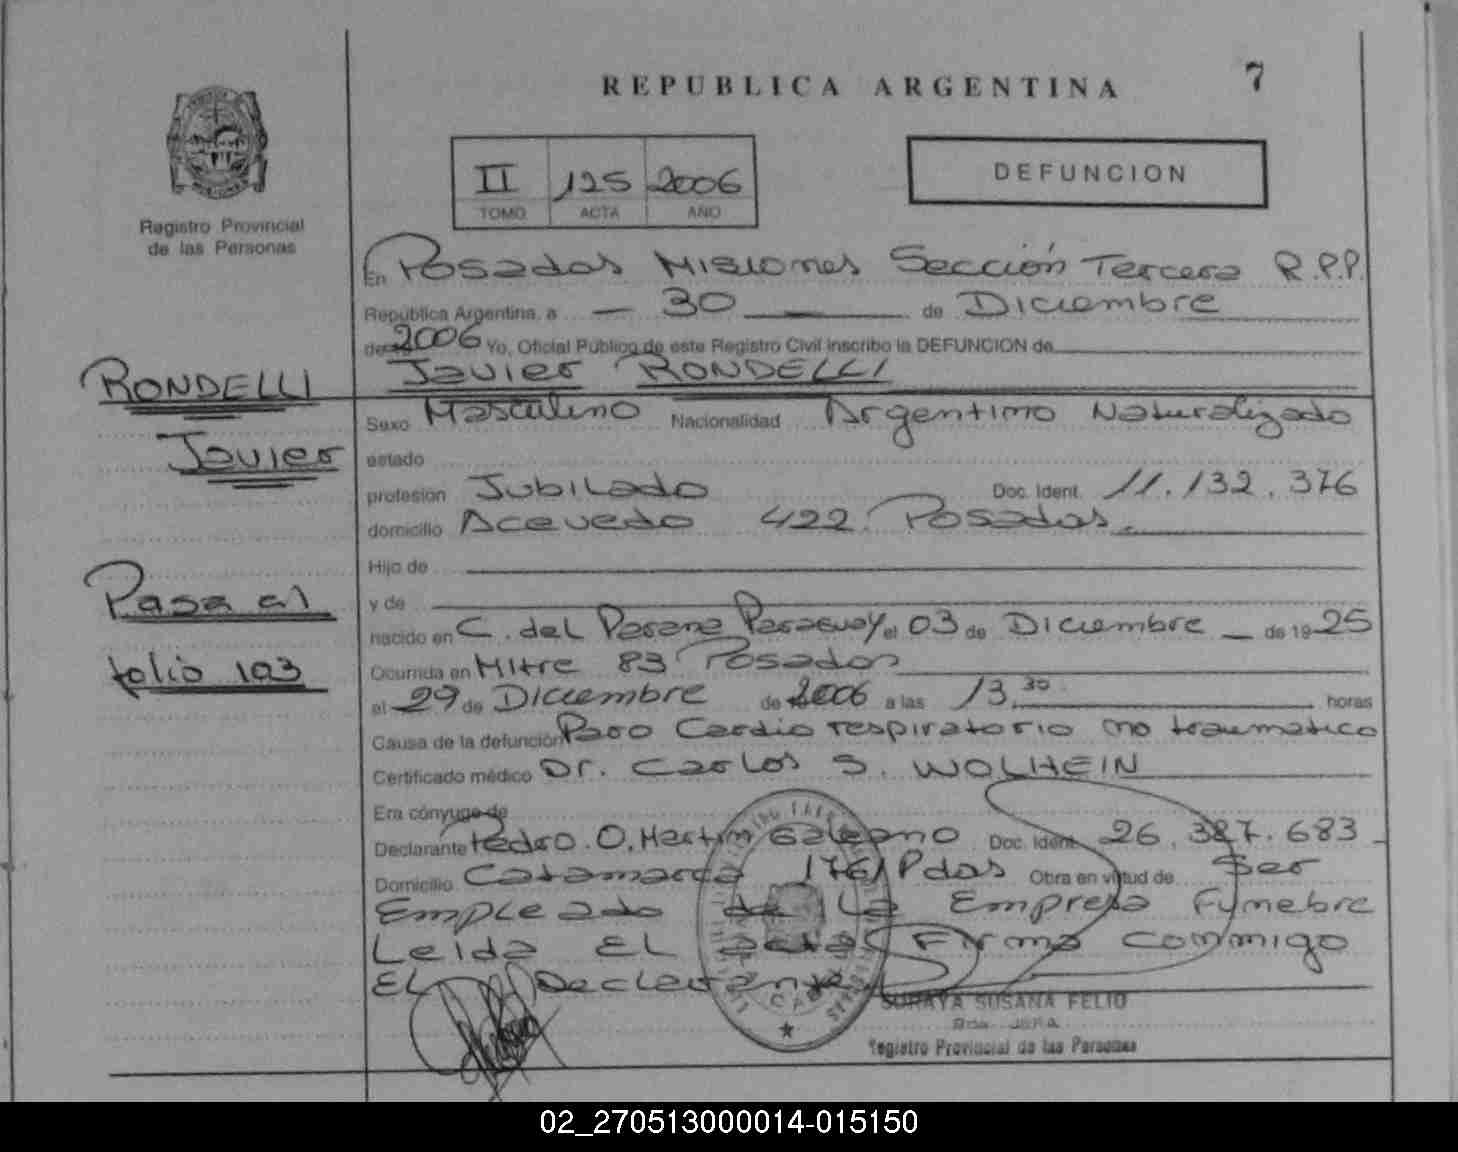 REPUBLICA ARGENTINA 7
Registro Provincial
de las Personas
II 125 2006
TOMO ACTA AÑO
DEFUNCION
En Posadas Misiones Sección Tercera R.P.P.
República Argentina, a 30 de Diciembre
de 2006 Yo, Oficial Público de este Registro Civil inscribo la DEFUNCION de
Javier RONDELLI
RONDELLI
Javier
Pasa al
folio 193
Sexo Masculino Nacionalidad Argentino Naturalizado
estado
profesión Jubilado Doc. Ident. 11.132.376
domicilio Acevedo 422. Posadas.
Hijo de
y de
nacido en C. del Parana Paraguay el 03 de Diciembre de 1925
Ocurrida en Mitre 83 Posadas
el 29 de Diciembre de 2006 a las 13.30 horas
Causa de la defunción Paro Cardio respiratorio no traumatico
Certificado médico Dr. Carlos S. WOLHEIN
Era cónyuge de
Declarante Pedro. O. Martin Galeano Doc. Ident. 26.387.683
Domicilio Catamarca 1761 Pdas Obra en virtud de Ser
Empleado de La Empresa Funebre
Leida EL acta Firma conmigo
EL Declarante
SORAYA SUSANA FELIO
Registro Provincial de las Personas
02_270513000014-015150